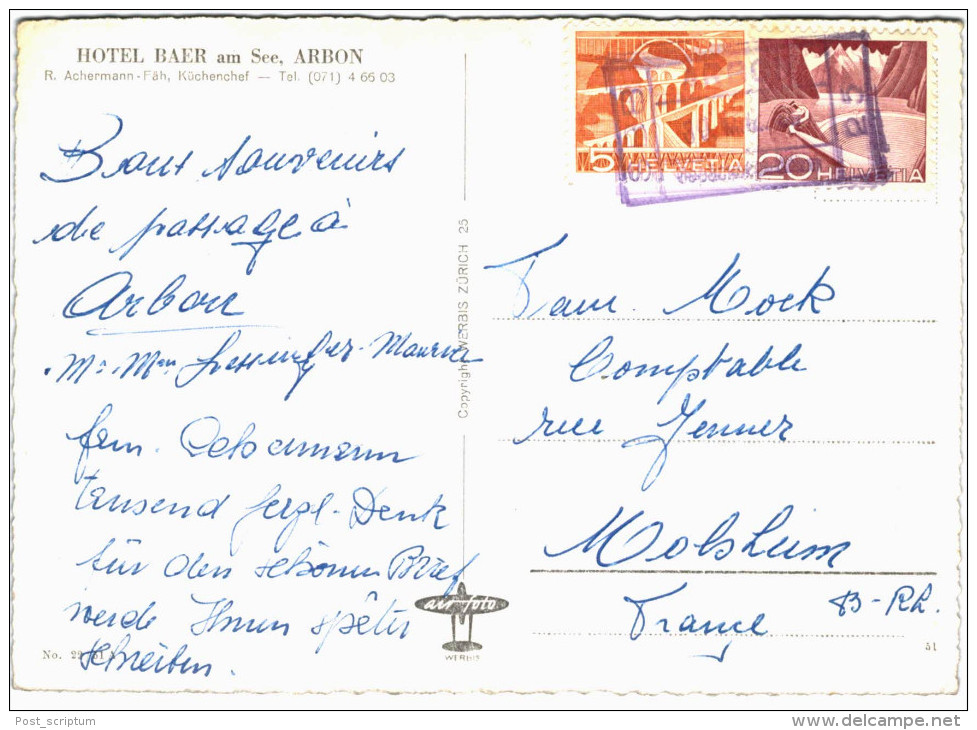 HOTEL BAER am See, ARBON
R. Achermann-Fäh, Küchenchef — Tel. (071) 4 66 03
Bons souvenirs
de passage à
Arbon
fam. Achermann
tausend herzl. Dank
für den schönen Brief
werde Ihnen später
schreiben.
No. 22
Copyright WERBIS ZÜRICH 25
air foto
WERBIS
5 HELVETIA
20 HELVETIA
Fam. Mock
Comptable
rue Jenner
Molsheim
B-Rh.
France
51
Post_scriptum
delcampe.net